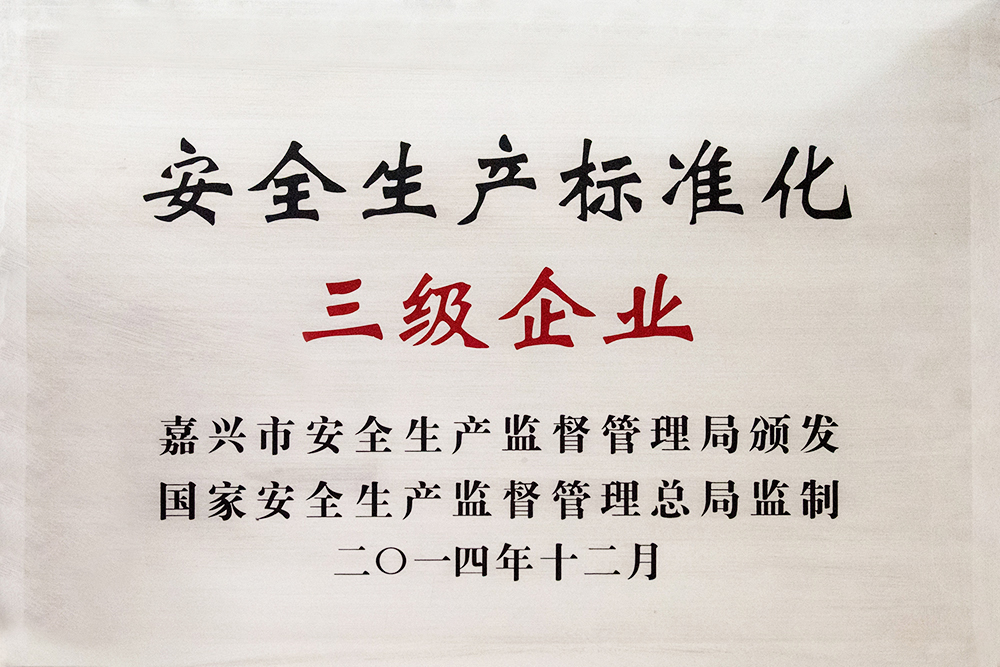 安全生产标准化
三级企业
嘉兴市安全生产监督管理局颁发
国家安全生产监督管理总局监制
二〇一四年十二月